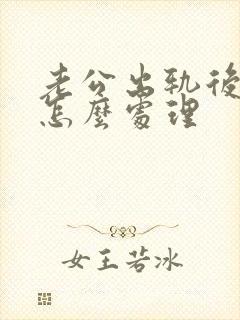 老公出軌後
怎麼處理
女王若冰